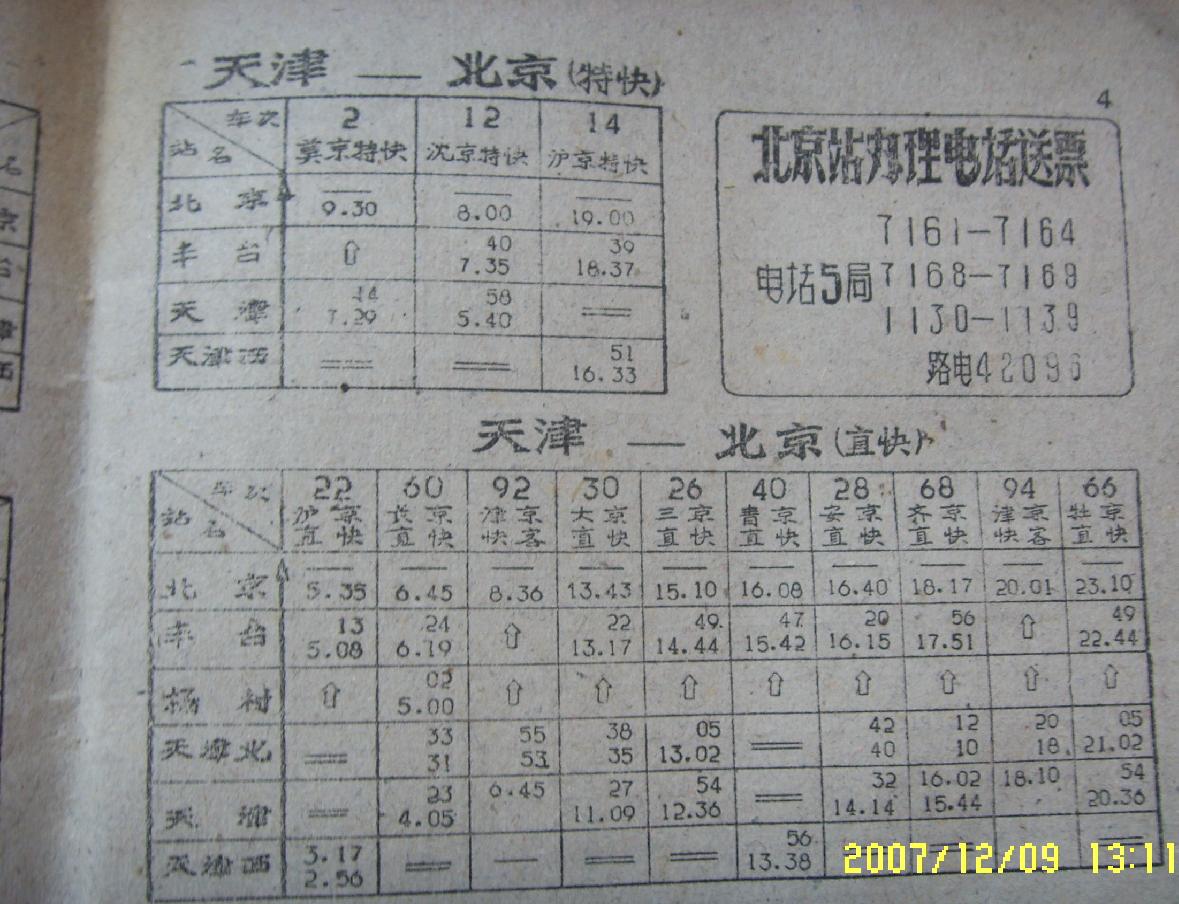 天津 — 北京(特快)
4
车次 2 12 14
站名 莫京特快 沈京特快 沪京特快
北京 — — —
9.30 8.00 19.00
丰台 ⇧ 40 39
7.35 18.37
天津 44 58 ==
7.29 5.40
天津西 == == 51
16.33
北京站办理电话送票
7161-7164
电话5局 7168-7169
1130-1139
路电42096
天津 — 北京(直快)
车次 22 60 92 30 26 40 28 68 94 66
站名 沪京 长京 津京 大京 三京 青京 安京 齐京 津京 牡京
直快 直快 快客 直快 直快 直快 直快 直快 快客 直快
北京 — — — — — — — — — —
5.35 6.45 8.36 13.43 15.10 16.08 16.40 18.17 20.01 23.10
丰台 13 24 ⇧ 22 49 47 20 56 ⇧ 49
5.08 6.19 13.17 14.44 15.42 16.15 17.51 22.44
杨村 ⇧ 02 ⇧ ⇧ ⇧ ⇧ ⇧ ⇧ ⇧ ⇧
5.00
天津北 == 33 55 38 05 == 42 12 20 05
31 53 35 13.02 40 10 18 21.02
天津 == 23 6.45 27 54 == 32 16.02 18.10 54
4.05 11.09 12.36 14.14 15.44 20.36
天津西 3.17 == — == == 56
2.56 13.38
2007/12/09 13:11